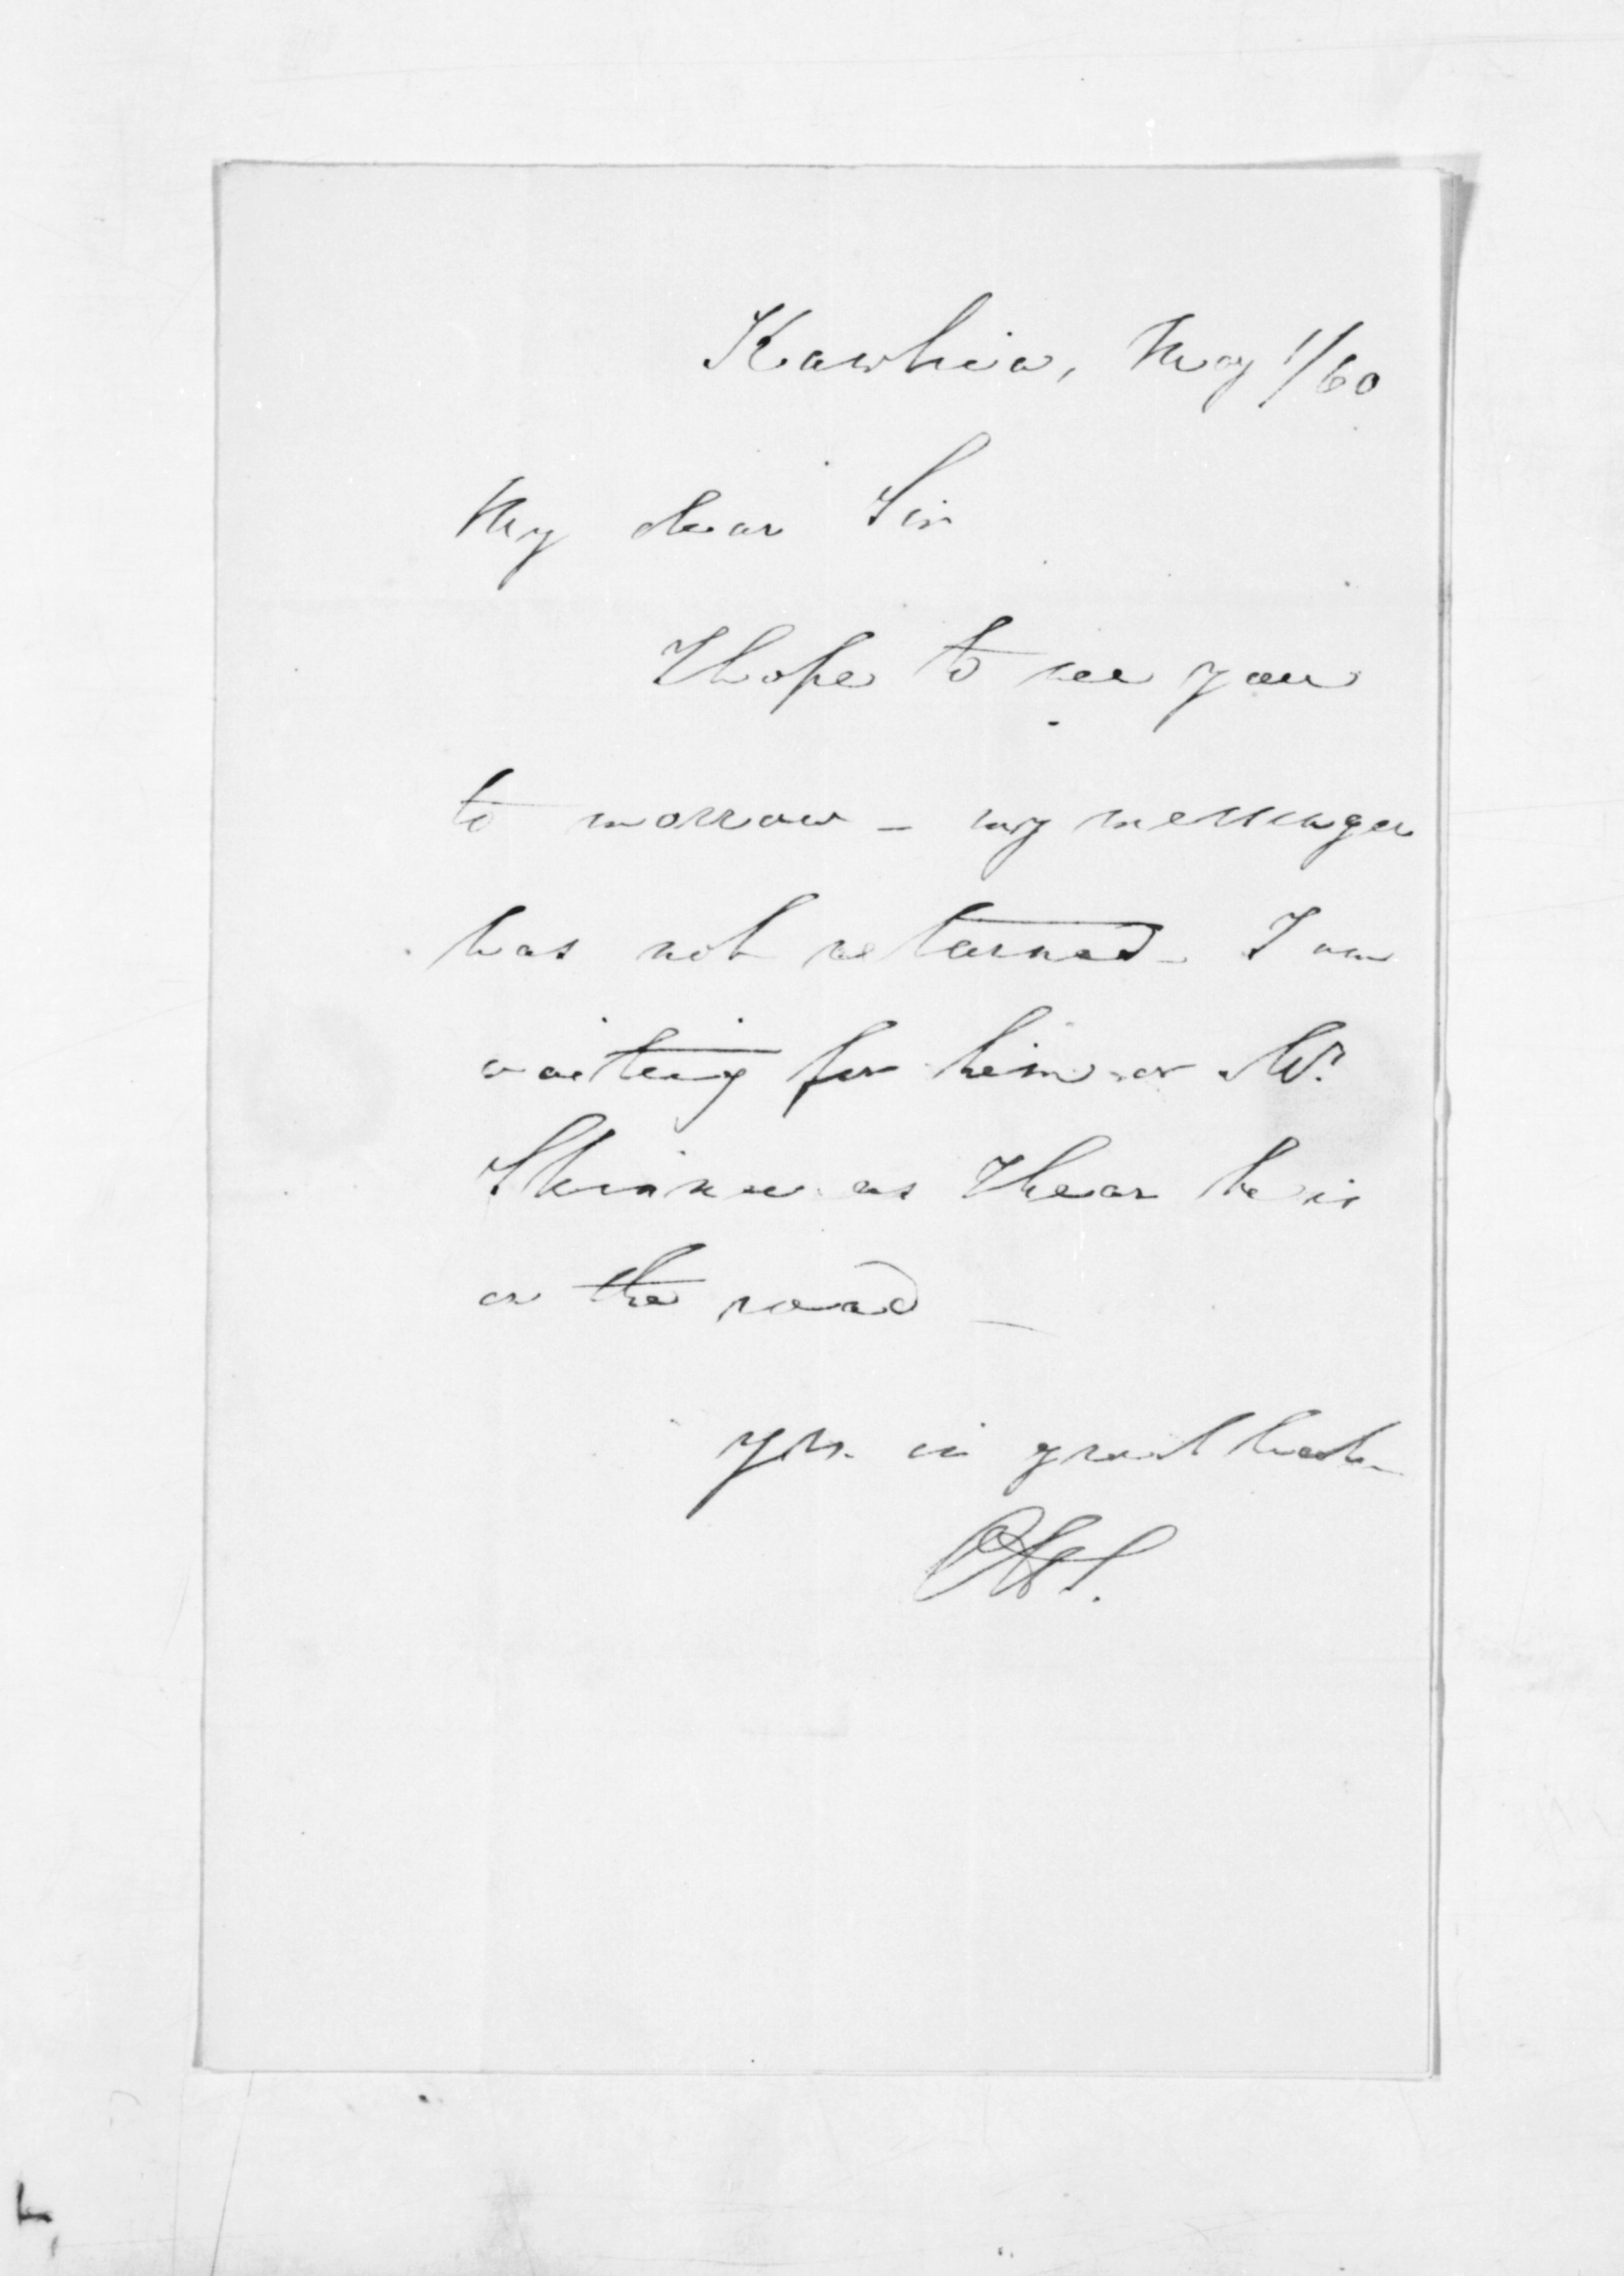 Kawhia, May 1/60
My dear Sir
I hope to see you
to morrow - my messenger
has not returned - I am
waiting for him or Mr.
Skinner as I hear he is
on the road -
yrs. in great haste